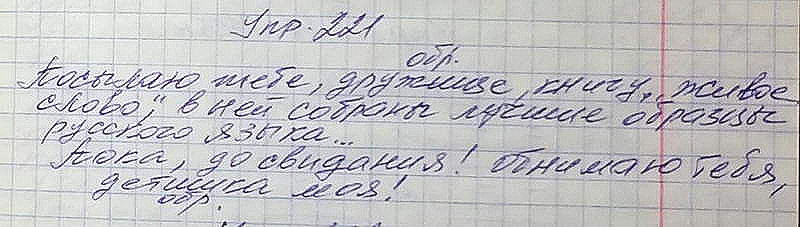 Упр. 221
обр.
Посылаю тебе, дружище, книгу „Живое
слово", в ней собраны лучшие образцы
русского языка...
Пока, до свидания! Обнимаю тебя,
детишка моя!
обр.